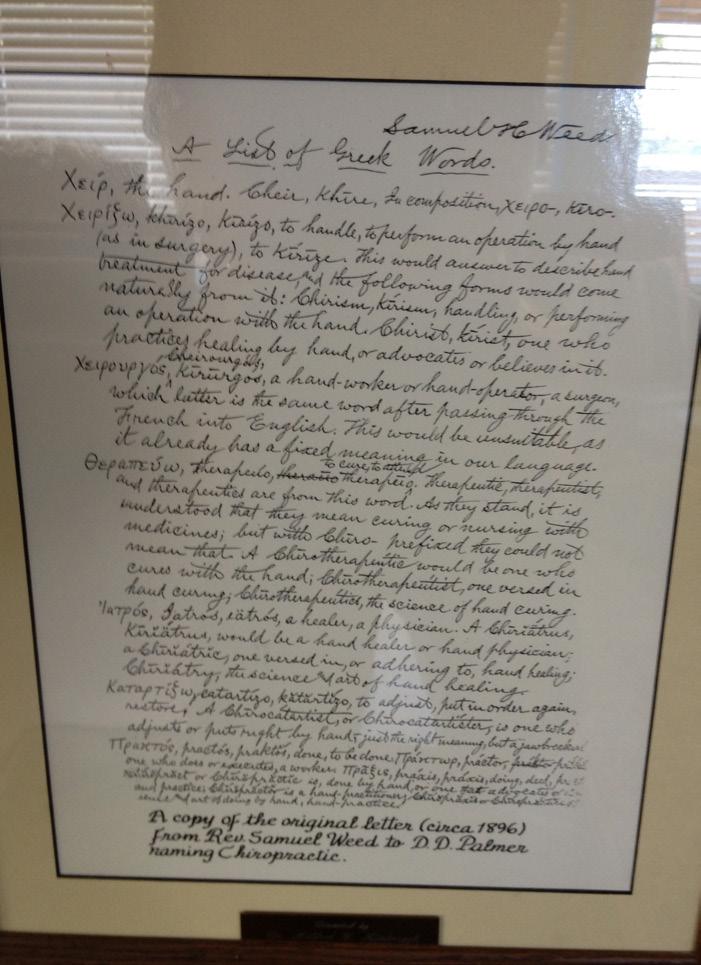 Samuel H Weed
A List of Greek Words.
Χείρ, the hand. Cheir, Khire, In composition, χειρο-, Kiro-.
Χειρίζω, khirizo, Kirizo, to handle, to perform an operation by hand
(as in surgery), to Kirize. This would answer to describe hand
treatment for disease, and the following forms would come
naturally from it: Chirism, Kirism, handling, or performing
an operation with the hand. Chirist, Kirist, one who
practices healing by hand, or advocates or believes in it.
Cheirourgos,
Χειρουργός, Kirurgos, a hand-worker or hand-operator, a surgeon,
which latter is the same word after passing through the
French into English. This would be unsuitable, as
it already has a fixed meaning in our language.
to cure, to attend
Θεραπεύω, therapeuo, therapuo. Therapeutic, therapeutist,
and therapeutics are from this word. As they stand, it is
understood that they mean curing or nursing with
medicines; but with Chiro- prefixed they could not
mean that. A Chirotherapeutic would be one who
cures with the hand; Chirotherapeutist, one versed in
hand curing; Chirotherapeutics, the science of hand curing.
Ἰατρός, Iatros, iātrós, a healer, a physician. A Chiriātrus,
Kiriātrus, would be a hand healer or hand physician;
a Chiriātric, one versed in, or adhering to, hand healing;
Chiriātry, the science & art of hand healing.
Καταρτίζω, catartizo, kătărtizo, to adjust, put in order again,
restore. A Chirocatartist, or Chirocatartister, is one who
adjusts or puts right by hand; just the right meaning, but a jawbreaker.
Πρακτός, practós, praktós, done, to be done. Πράκτωρ, practor,
one who does or executes, a worker. Πρᾶξις, praxis, práxis, doing, deed,
or Chiropractic is, done by hand, or one that advocates
and practice. Chiropractor is a hand-practitioner; Chiropraxis or
& art of doing by hand, hand-practice.
A copy of the original letter (circa 1896)
from Rev. Samuel Weed to D.D. Palmer
naming Chiropractic.